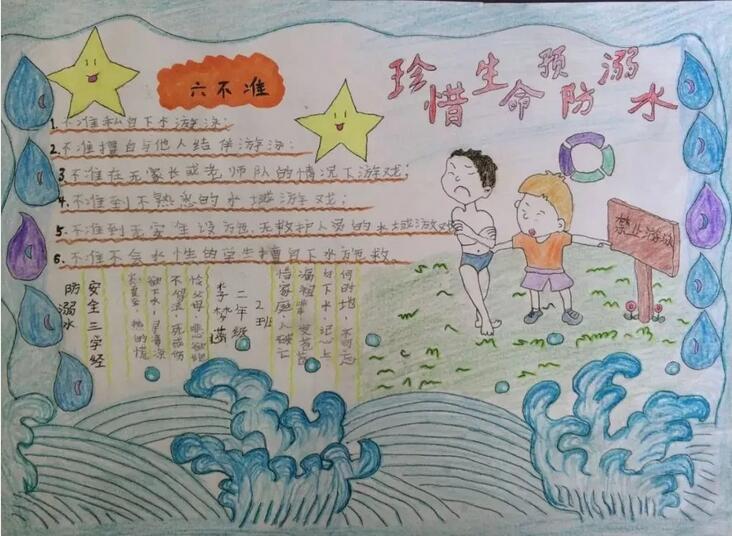 珍惜生命预防溺水
六不准
1.不准私自下水游泳；
2.不准擅自与他人结伴游泳；
3.不准在无家长或老师队的情况下游戏；
4.不准到不熟悉的水域游戏；
5.不准到无安全设施、无救护人员的水域游戏
6.不准不会水性的学生擅自下水施救
禁止游泳
防溺水
安全三字经
二年级
2班
何时地，不可忘
自下水，记心上
惜家庭，人破亡